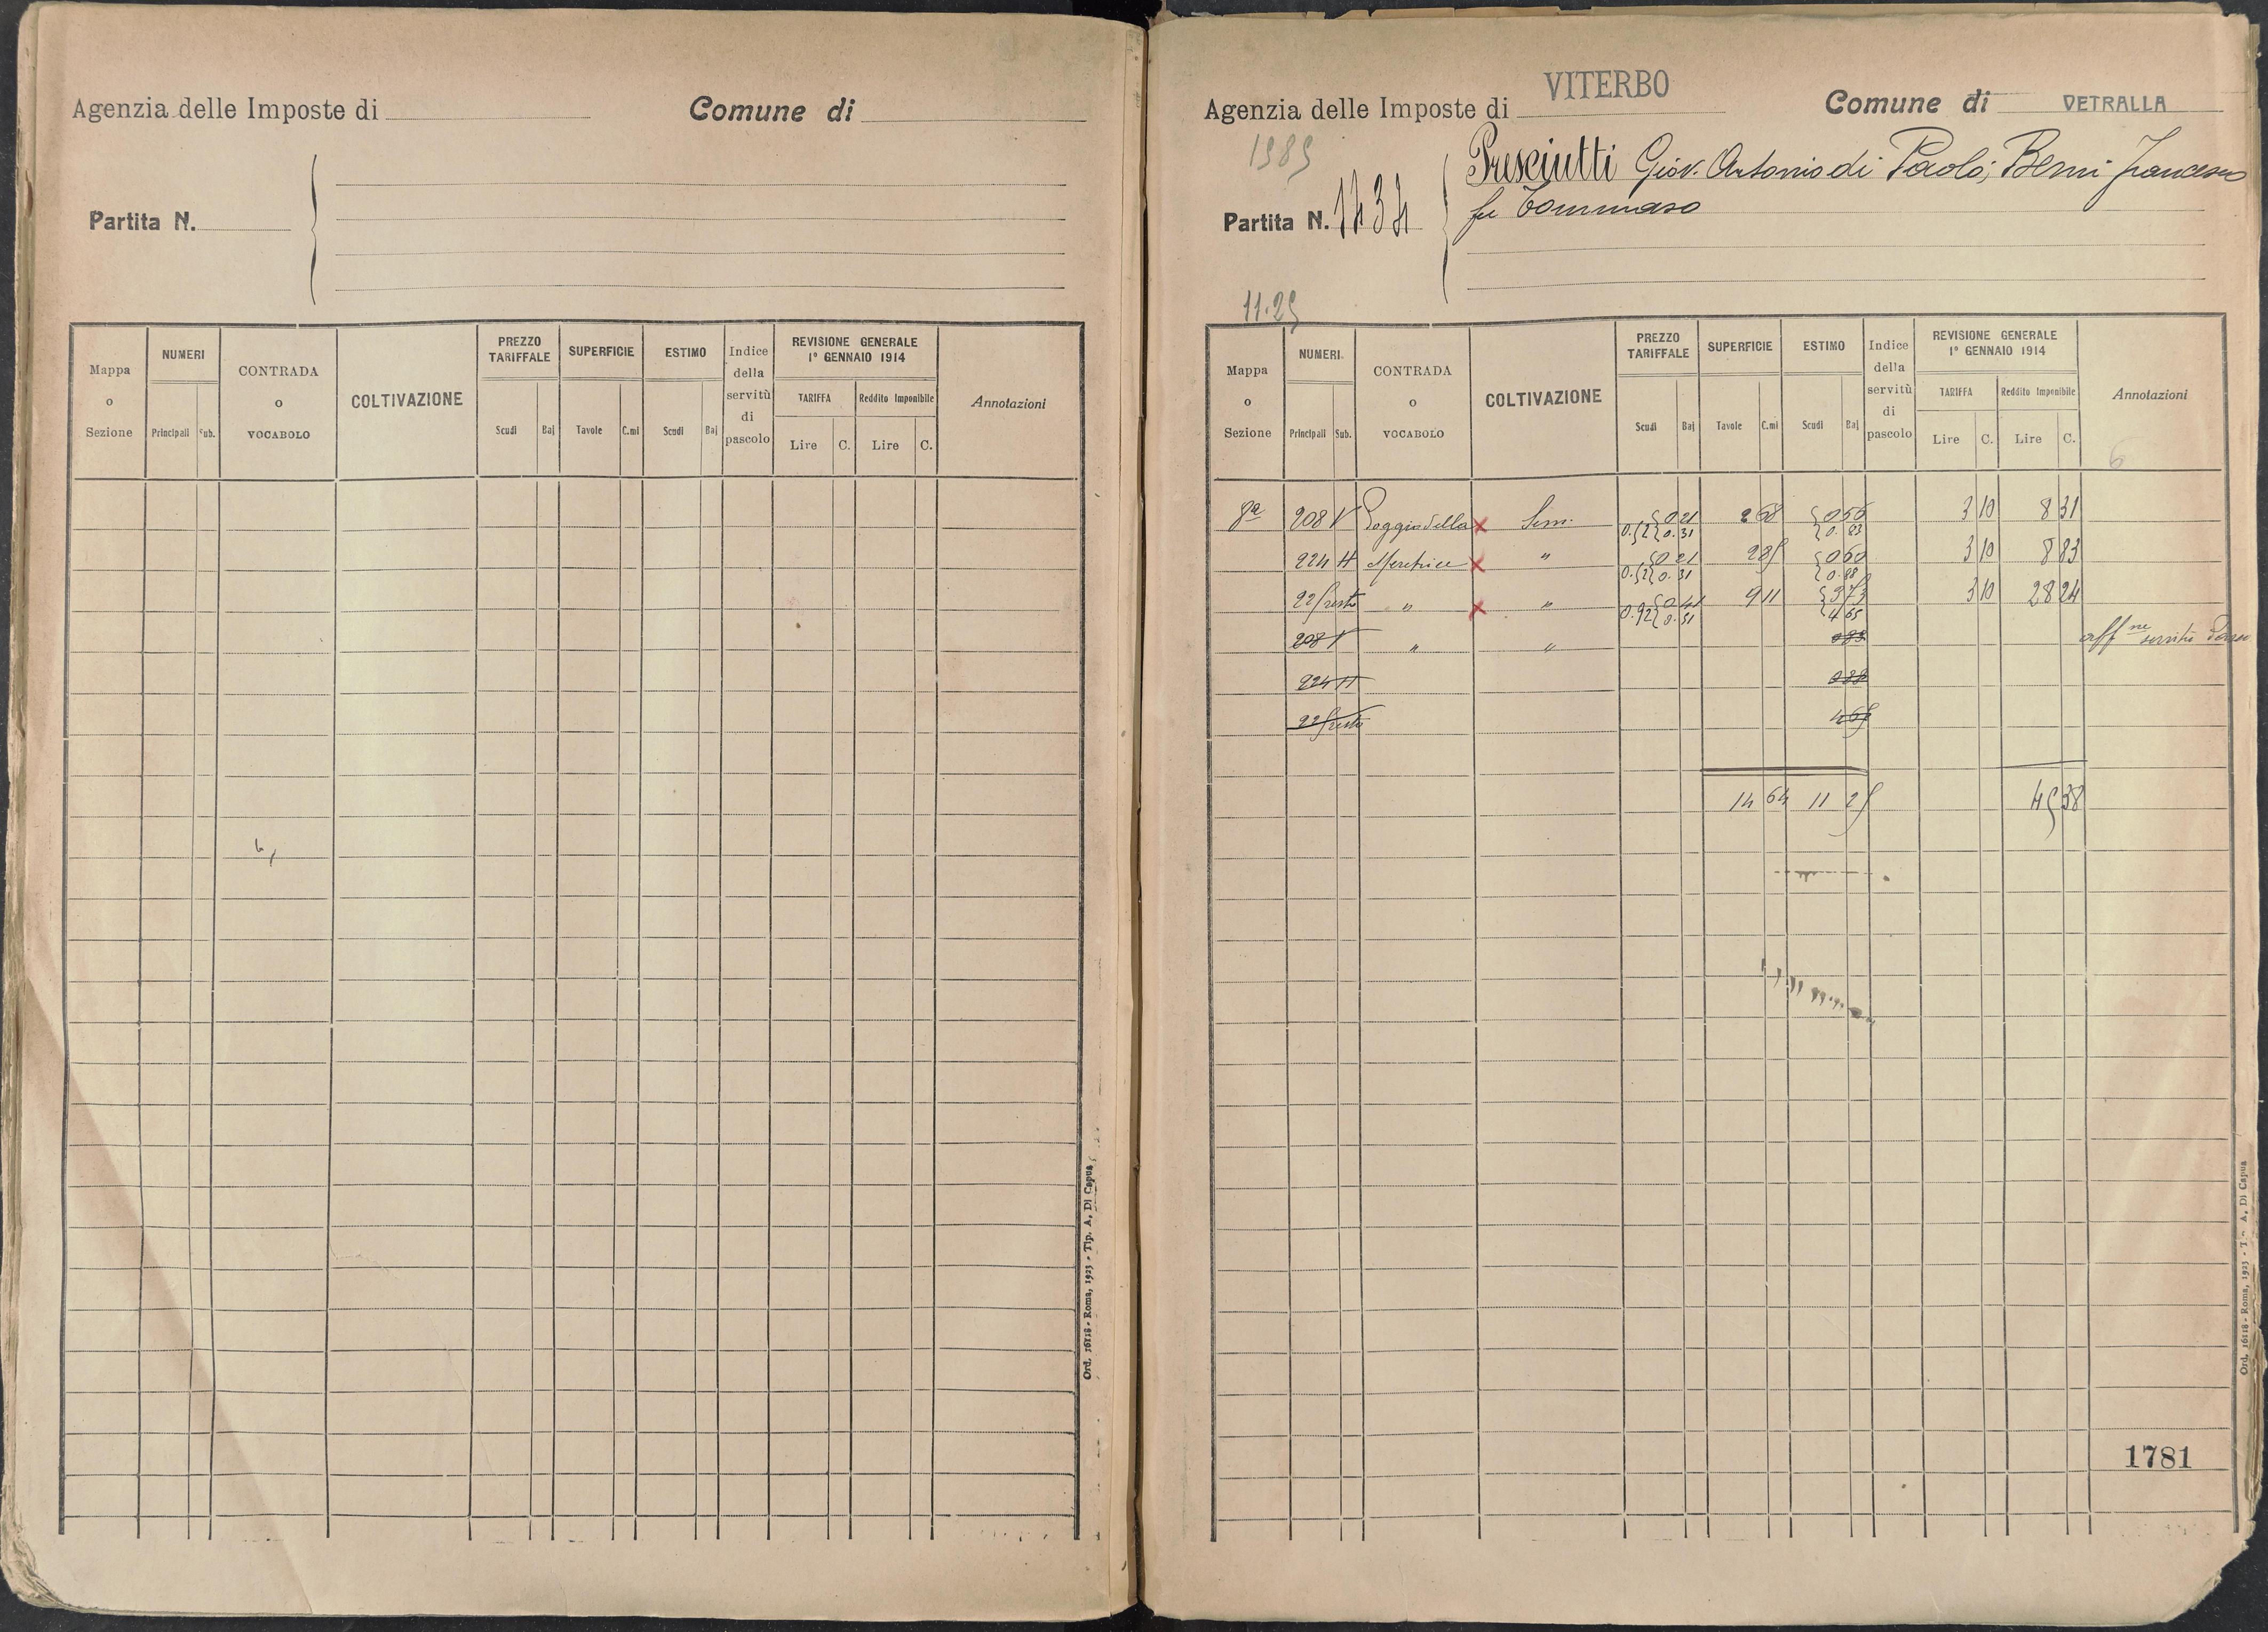 Agenzia delle Imposte di
Comune di
Partita N.
Mappa o Sezione
NUMERI
Principali
Sub.
CONTRADA o VOCABOLO
COLTIVAZIONE
PREZZO TARIFFALE
Scudi
Baj
SUPERFICIE
Tavole
C.mi
ESTIMO
Scudi
Baj
Indice della servitù di pascolo
REVISIONE GENERALE
1° GENNAIO 1914
TARIFFA
Lire
C.
Reddito Imponibile
Lire
C.
Annotazioni
Ord. 16118 - Roma, 1923 - Tip. A. Di Capua
Agenzia delle Imposte di VITERBO
Comune di VETRALLA
Partita N. 1434
Presciutti Giov. Antonio di Paolo; Berni Francesco
fu Tommaso
11.25
Mappa o Sezione
NUMERI
Principali
Sub.
CONTRADA o VOCABOLO
COLTIVAZIONE
PREZZO TARIFFALE
Scudi
Baj
SUPERFICIE
Tavole
C.mi
ESTIMO
Scudi
Baj
Indice della servitù di pascolo
REVISIONE GENERALE
1° GENNAIO 1914
TARIFFA
Lire
C.
Reddito Imponibile
Lire
C.
Annotazioni
6
8ª 208 V Poggio della × Sem. 0 21 2 68 0 56 3 10 8 31
0.52 0.31 0.83
224 H Meretrice × " 0 21 2 85 0 60 3 10 8 83
0.52 0.31 0.88
225 resto " × " 0 41 9 11 3 73 3 10 28 24
0.92 0.51 4 65
208 V " " 0 83 aff ne servitù
224 H 0 88
225 resto 4 65
14 64 11 25 45 38
1781
Ord. 16118 - Roma, 1923 - Tip. A. Di Capua